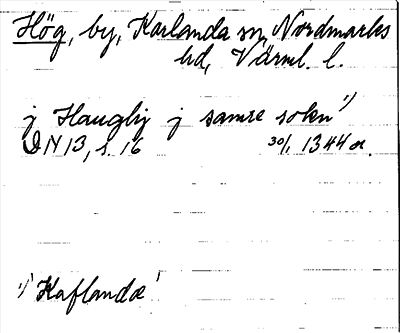 Hög, by, Karlanda sn, Nordmarks
hd, Värml. l.
j Haugby j samre sokn 1)
DN 13, s. 16 30/1 1344 or.
1) 'Kaflandæ'